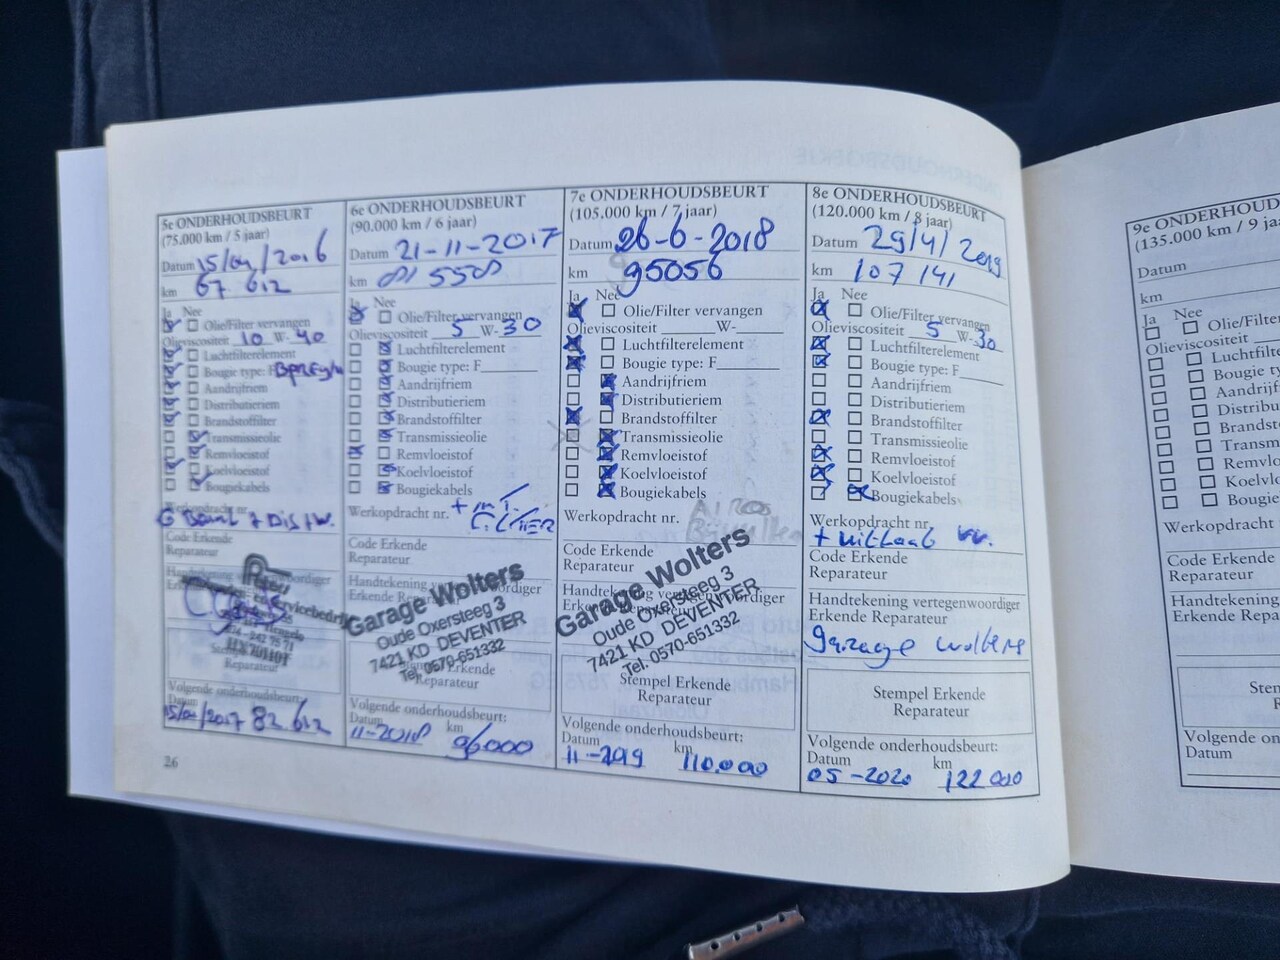 5e ONDERHOUDSBEURT
(75.000 km / 5 jaar)
Datum 15/04/2016
km 67 612
Ja Nee
Olie/Filter vervangen
Olieviscositeit 10 W- 40
Luchtfilterelement
Bougie type: F
Aandrijfriem
Distributieriem
Brandstoffilter
Transmissieolie
Remvloeistof
Koelvloeistof
Bougiekabels
Code Erkende
Reparateur
Stempel Erkende
Reparateur
Volgende onderhoudsbeurt:
Datum
15/04/2017 82 612
26
6e ONDERHOUDSBEURT
(90.000 km / 6 jaar)
Datum 21-11-2017
km 81 550
Ja Nee
Olie/Filter vervangen
Olieviscositeit 5 W- 30
Luchtfilterelement
Bougie type: F
Aandrijfriem
Distributieriem
Brandstoffilter
Transmissieolie
Remvloeistof
Koelvloeistof
Bougiekabels
Werkopdracht nr.
Code Erkende
Reparateur
Garage Wolters
Oude Oxersteeg 3
7421 KD DEVENTER
Tel. 0570-651332
Reparateur
Volgende onderhoudsbeurt:
Datum km
11-2018 96000
7e ONDERHOUDSBEURT
(105.000 km / 7 jaar)
Datum 26-6-2018
km 95056
Ja Nee
Olie/Filter vervangen
Olieviscositeit W-
Luchtfilterelement
Bougie type: F
Aandrijfriem
Distributieriem
Brandstoffilter
Transmissieolie
Remvloeistof
Koelvloeistof
Bougiekabels
Werkopdracht nr.
Code Erkende
Reparateur
Garage Wolters
Oude Oxersteeg 3
7421 KD DEVENTER
Tel. 0570-651332
Stempel Erkende
Reparateur
Volgende onderhoudsbeurt:
Datum km
11-2019 110.000
8e ONDERHOUDSBEURT
(120.000 km / 8 jaar)
Datum 29/4/2019
km 107 141
Ja Nee
Olie/Filter vervangen
Olieviscositeit 5 W- 30
Luchtfilterelement
Bougie type: F
Aandrijfriem
Distributieriem
Brandstoffilter
Transmissieolie
Remvloeistof
Koelvloeistof
Bougiekabels
Werkopdracht nr.
+ uitlaat vv.
Code Erkende
Reparateur
Handtekening vertegenwoordiger
Erkende Reparateur
garage wolters
Stempel Erkende
Reparateur
Volgende onderhoudsbeurt:
Datum km
05-2020 122 000
9e
(135.000 km / 9
Datum
km
Ja Nee
Olieviscositeit
Werkopdracht nr.
Code Erkende
Reparateur
Handtekening
Erkende
Datum